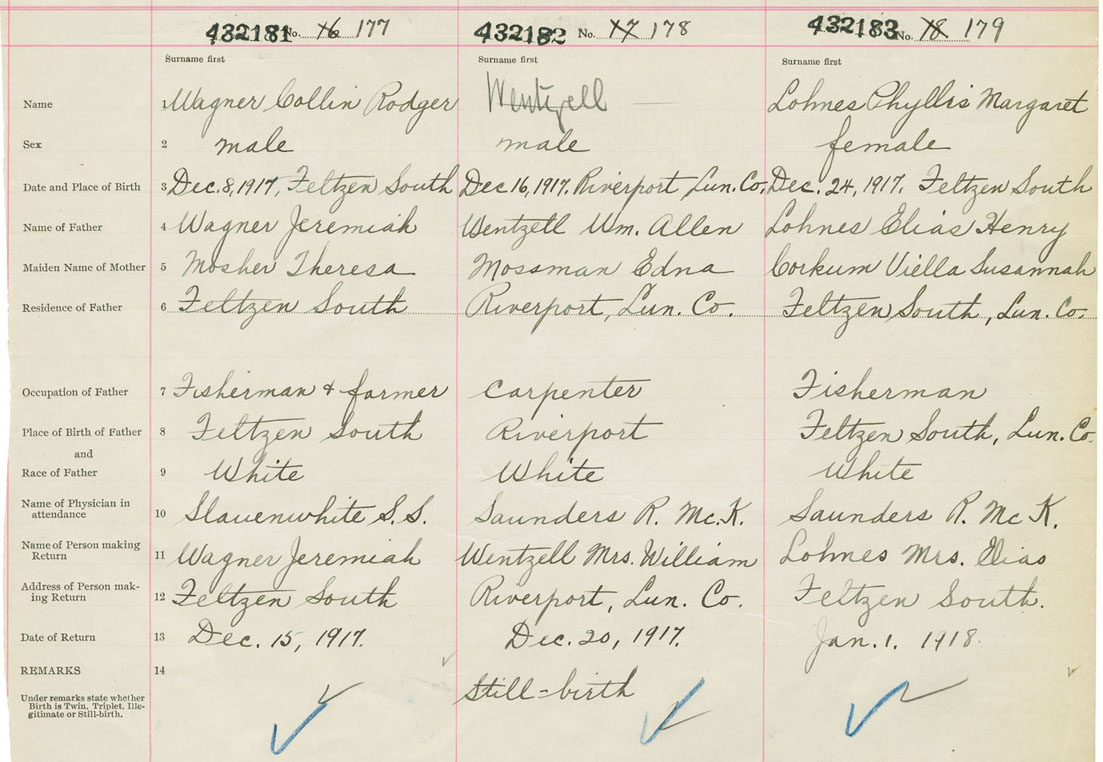 432181 No. 16 177 432182 No. 17 178 432183 No. 18 179
Surname first Surname first Surname first
Name 1 Wagner Collin Rodger Wentzell Lohnes Phyllis Margaret
Sex 2 male male female
Date and Place of Birth 3 Dec. 8, 1917, Feltzen South Dec 16, 1917. Riverport Lun. Co. Dec. 24, 1917. Feltzen South
Name of Father 4 Wagner Jeremiah Wentzell Wm. Allen Lohnes Elias Henry
Maiden Name of Mother 5 Mosher Theresa Mossman Edna Corkum Viella Susannah
Residence of Father 6 Feltzen South Riverport, Lun. Co. Feltzen South, Lun. Co.
Occupation of Father 7 Fisherman + farmer Carpenter Fisherman
Place of Birth of Father 8 Feltzen South Riverport Feltzen South, Lun. Co.
and
Race of Father 9 White White White
Name of Physician in
attendance 10 Slauenwhite S. S. Saunders R. Mc. K. Saunders R. Mc K.
Name of Person making
Return 11 Wagner Jeremiah Wentzell Mrs. William Lohnes Mrs. Elias
Address of Person mak-
ing Return 12 Feltzen South Riverport, Lun. Co. Feltzen South.
Date of Return 13 Dec. 15, 1917. Dec. 20, 1917. Jan. 1. 1918.
REMARKS 14 Still-birth
Under remarks state whether
Birth is Twin, Triplet, Ille-
gitimate or Still-birth.